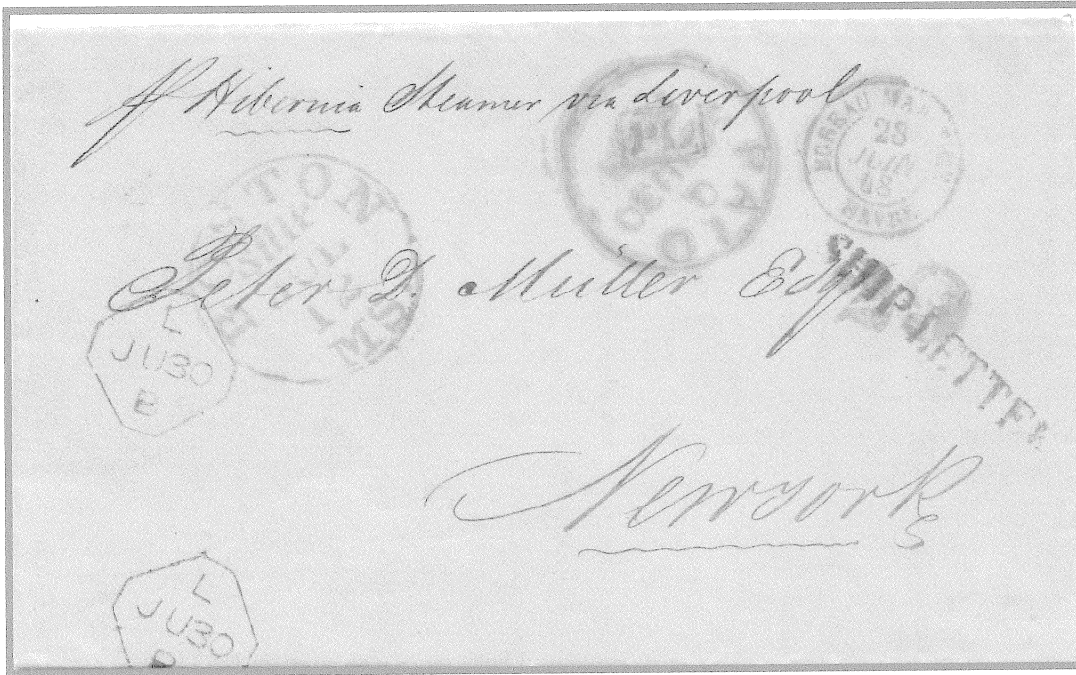 pr Hibernia Steamer via Liverpool
PAID
30 JU 30
BUREAU MAR
28
JUIN
48
HAVRE
BOSTON
JUL
MS.
SHIP LETTER
Peter D. Müller Esqr
L
JU30
B
New York
L
JU30
B